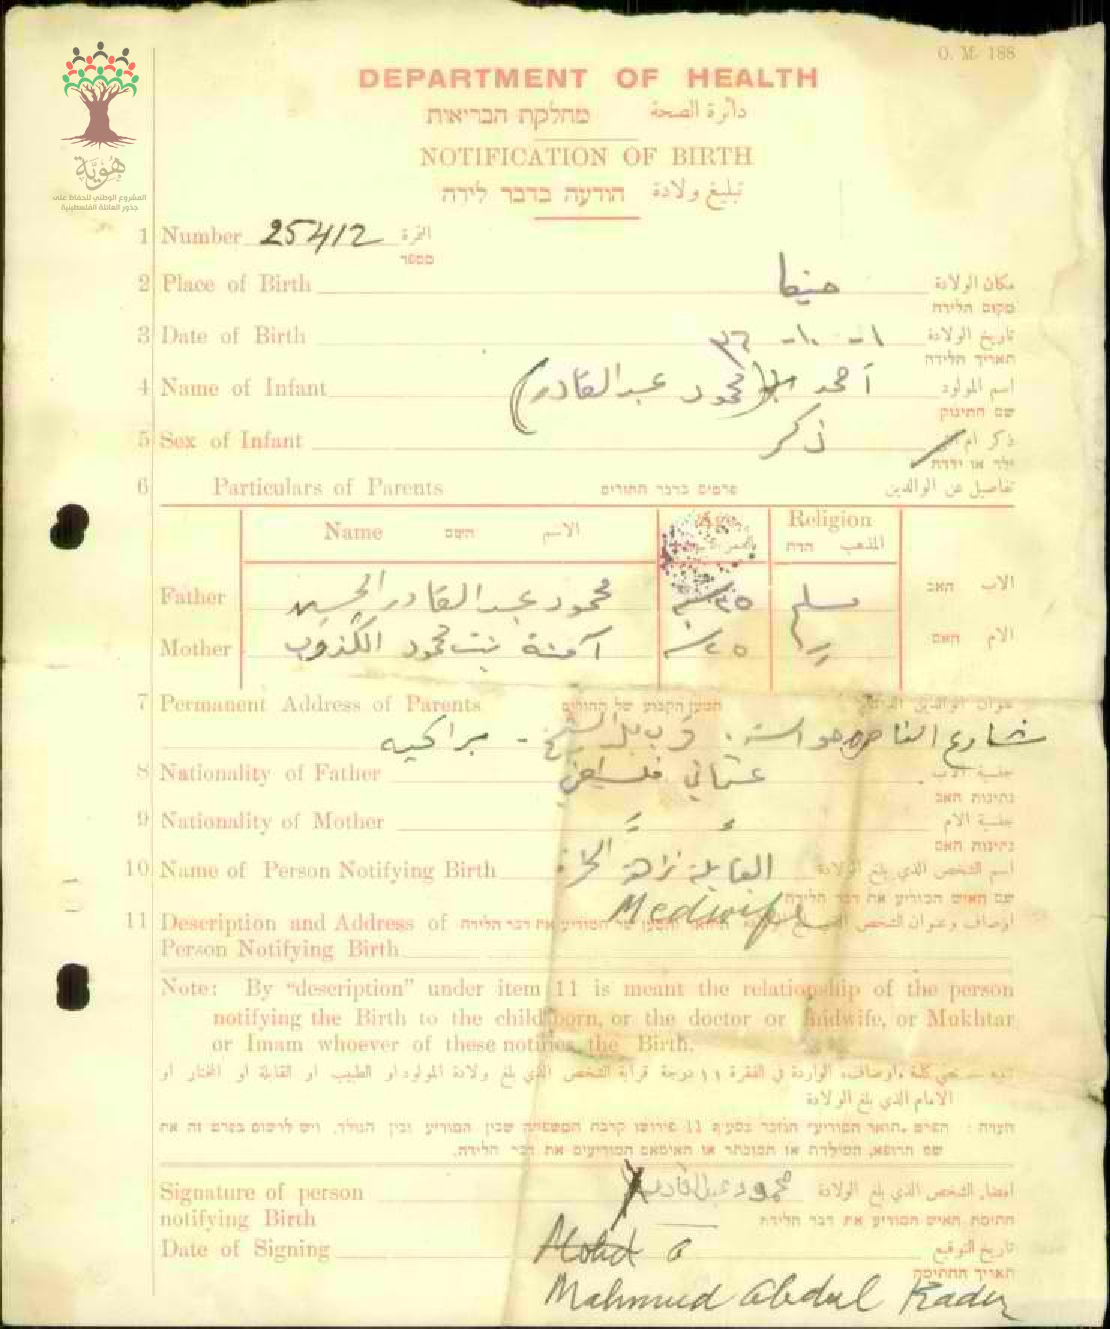 O. M. 188
هُوِيَّة
المشروع الوطني للحفاظ على
جذور العائلة الفلسطينية
DEPARTMENT OF HEALTH
מחלקת הבריאות دائرة الصحة
NOTIFICATION OF BIRTH
הודעה בדבר לידה تبليغ ولادة
1 Number 25412 النمرة
מספר
2 Place of Birth حيفا مكان الولادة
מקום הלידה
3 Date of Birth ١- ١٠- ٣٦ تاريخ الولادة
תאריך הלידה
4 Name of Infant أحمد (محمود عبدالقادر) اسم المولود
שם התינוק
5 Sex of Infant ذكر ذكر ام
ילד או ילדה
6 Particulars of Parents פרטים בדבר ההורים تفاصيل عن الوالدين
Name השם الاسم Age Religion
المذهب הדת
Father محمود عبد القادر الحسين ٤٥ مسلم الاب האב
Mother آمنة بنت محمود ٢٥ الام האם
7 Permanent Address of Parents המען הקבוע של ההורים عنوان الوالدين
شارع الناصره قرب الشيخ - براكيه
8 Nationality of Father عثماني فلسطيني جنسية الاب
נתינות האב
9 Nationality of Mother جنسية الام
נתינות האם
10 Name of Person Notifying Birth القابلة اسم الشخص الذي بلغ الولادة
שם האיש המודיע את דבר הלידה
Medwife
11 Description and Address of המודיע את דבר הלידה اوصاف وعنوان الشخص
Person Notifying Birth
Note: By "description" under item 11 is meant the relationship of the person
notifying the Birth to the child born, or the doctor or midwife, or Mukhtar
or Imam whoever of these notifies the Birth.
الواردة في الفقرة ١١ درجة قرابة الشخص الذي بلغ ولادة المولود او الطبيب او القابلة او المختار او
الامام الذي بلغ الولادة
הערה: הפרט "תואר המודיע" הנזכר בסעיף 11 פירושו קרבת המשפחה שבין המודיע ובין הנולד. ויש לרשום בפרט זה את
שם הרופא, המילדת או המוכתר או האימאם המודיעים את דבר הלידה.
Signature of person محمود عبدالقادر امضاء الشخص الذي بلغ الولادة
notifying Birth חתימת האיש המודיע את דבר הלידה
Date of Signing تاريخ التوقيع
תאריך החתימה
Mahmud Abdul Kader